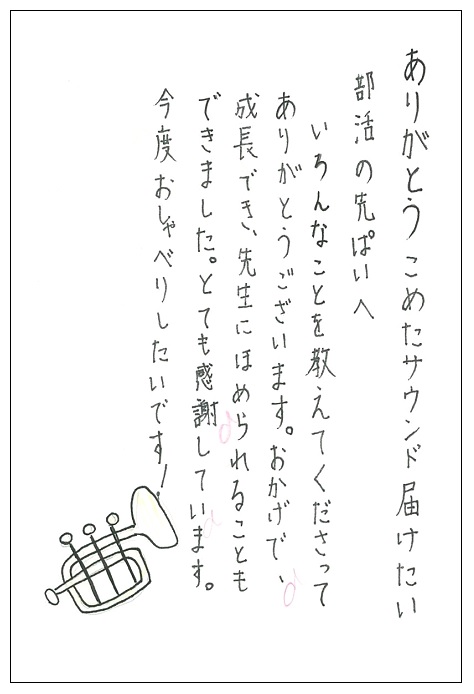 ありがとうこめたサウンド届けたい
部活の先ぱいへ
いろんなことを教えてくださって
ありがとうございます。おかげで、
成長でき、先生にほめられることも
できました。とても感謝しています。
今度おしゃべりしたいです！